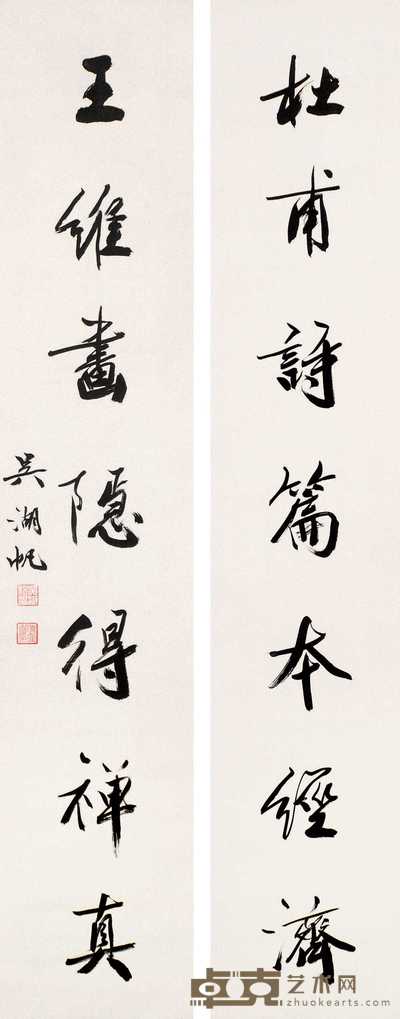 杜甫詩篇本經濟
王維畫隱得禪真
吳湖帆
卓克艺术网
zhuokearts.com